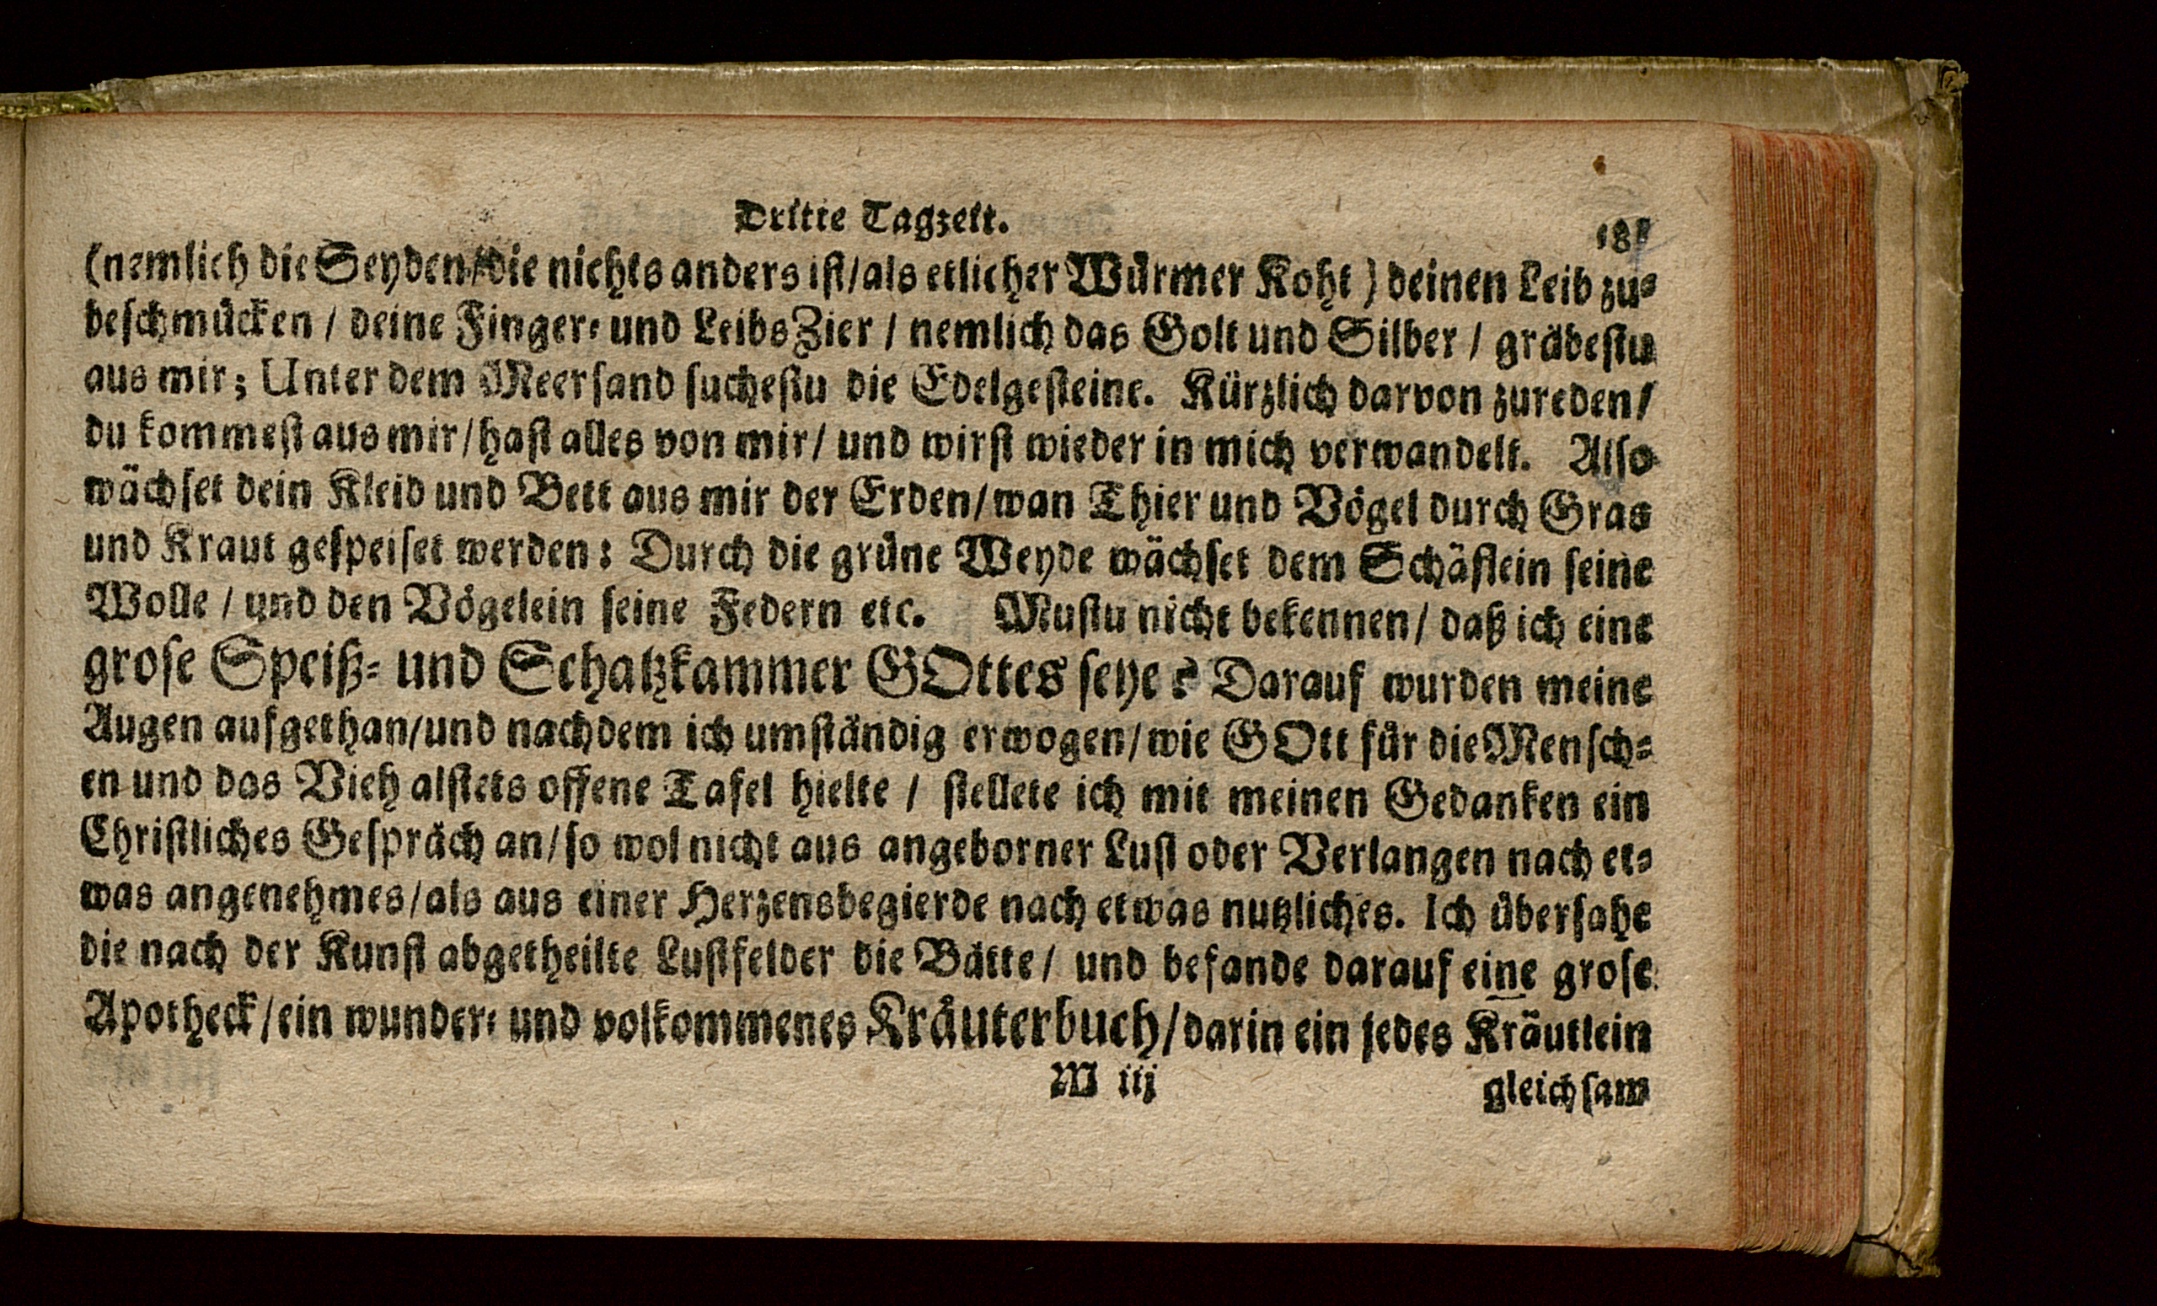 Dritte Tagzeit.
181
(nemlich die Seyden/die nichts anders ist/als etlicher Würmer Koht) deinen Leib zu-
beschmücken / deine Finger- und LeibsZier / nemlich das Golt und Silber / gräbestu
aus mir; Unter dem Meersand suchestu die Edelgesteine. Kürzlich darvon zureden/
du kommest aus mir/hast alles von mir/ und wirst wieder in mich verwandelt. Also
wächset dein Kleid und Bett aus mir der Erden/wan Thier und Vögel durch Gras
und Kraut gespeiset werden: Durch die grüne Weyde wächset dem Schäflein seine
Wolle / und den Vögelein seine Federn etc. Mustu nicht bekennen/ daß ich eine
grose Speiß- und Schatzkammer GOttes seye? Darauf wurden meine
Augen aufgethan/und nachdem ich umständig erwogen/wie GOtt für die Mensch-
en und das Vieh alstets offene Tafel hielte / stellete ich mit meinen Gedanken ein
Christliches Gespräch an/so wol nicht aus angeborner Lust oder Verlangen nach et-
was angenehmes/als aus einer Herzensbegierde nach etwas nutzliches. Ich übersahe
die nach der Kunst abgetheilte Lustfelder die Bätte/ und befande darauf eine grose
Apotheck/ein wunder- und volkommenes Kräuterbuch/darin ein jedes Kräutlein
M iij
gleichsam